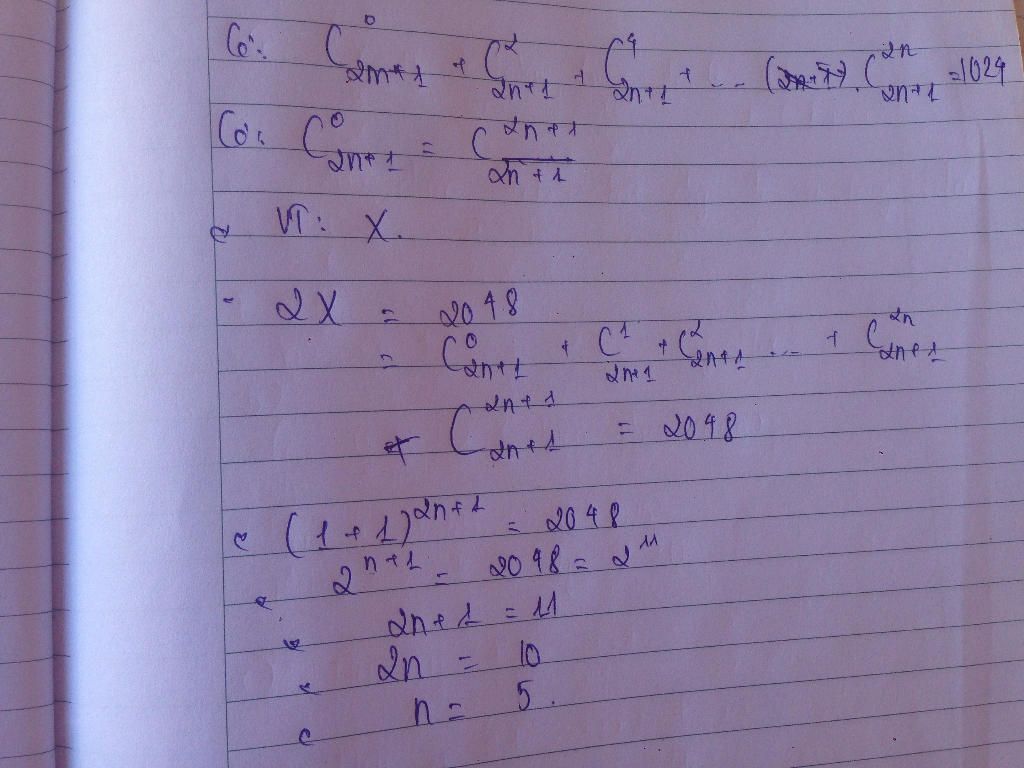 Có: C⁰₂ₙ₊₁ + C²₂ₙ₊₁ + C⁴₂ₙ₊₁ + ... . C²ⁿ₂ₙ₊₁ = 1024
Có: C⁰₂ₙ₊₁ = C²ⁿ⁺¹₂ₙ₊₁
VT: X.
- 2X = 2048
= C⁰₂ₙ₊₁ + C¹₂ₙ₊₁ + C²₂ₙ₊₁ ... + C²ⁿ₂ₙ₊₁
+ C²ⁿ⁺¹₂ₙ₊₁ = 2048
(1 + 1)²ⁿ⁺¹ = 2048
2ⁿ⁺¹ = 2048 = 2¹¹
2n + 1 = 11
2n = 10
n = 5.